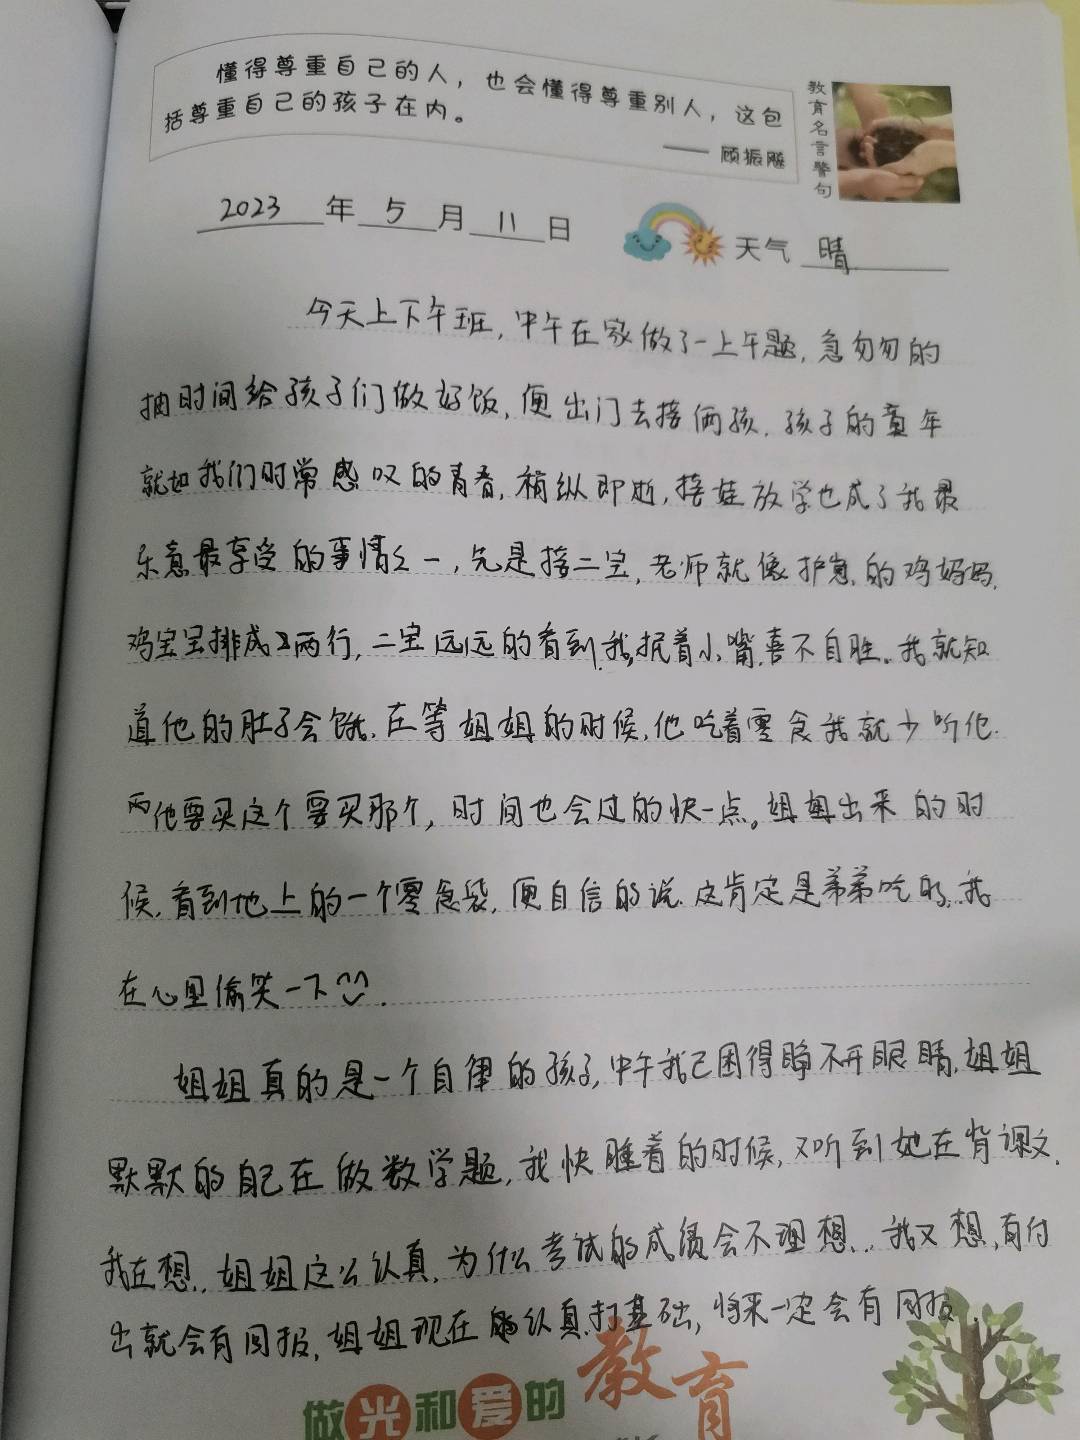 懂得尊重自己的人，也会懂得尊重别人，这包
括尊重自己的孩子在内。
—— 顾振飚
教育名言警句
2023 年 5 月 11 日 天气 晴
今天上下午班，中午在家做了一上午题，急匆匆的
抽时间给孩子们做好饭，便出门去接俩孩，孩子的童年
就如我们时常感叹的青春，稍纵即逝，接娃放学也成了我最
乐意最享受的事情之一，先是接二宝，老师就像护崽的鸡妈妈，
鸡宝宝排成两行，二宝远远的看到我，抿着小嘴，喜不自胜。我就知
道他的肚子会饿，在等姐姐的时候，他吃着零食我就少听他
他要买这个要买那个，时间也会过的快一点。姐姐出来的时
候，看到地上的一个零食袋，便自信的说，这肯定是弟弟吃的，我
在心里偷笑一下^^.
姐姐真的是一个自律的孩子，中午我已困得睁不开眼睛，姐姐
默默的自己在做数学题，我快睡着的时候，又听到她在背课文，
我在想，姐姐这么认真，为什么考试的成绩会不理想，我又想，有付
出就会有回报，姐姐现在认真打基础，将来一定会有回报，
做光和爱的教育